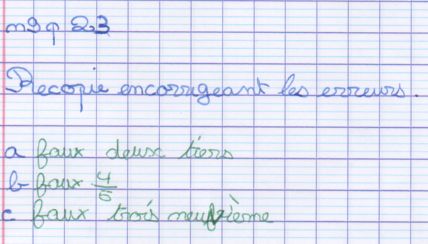 n°9 p 23
Recopie encorrigeant les erreurs.
a faux deux tiers
b faux 4/5
c faux trois neuvième